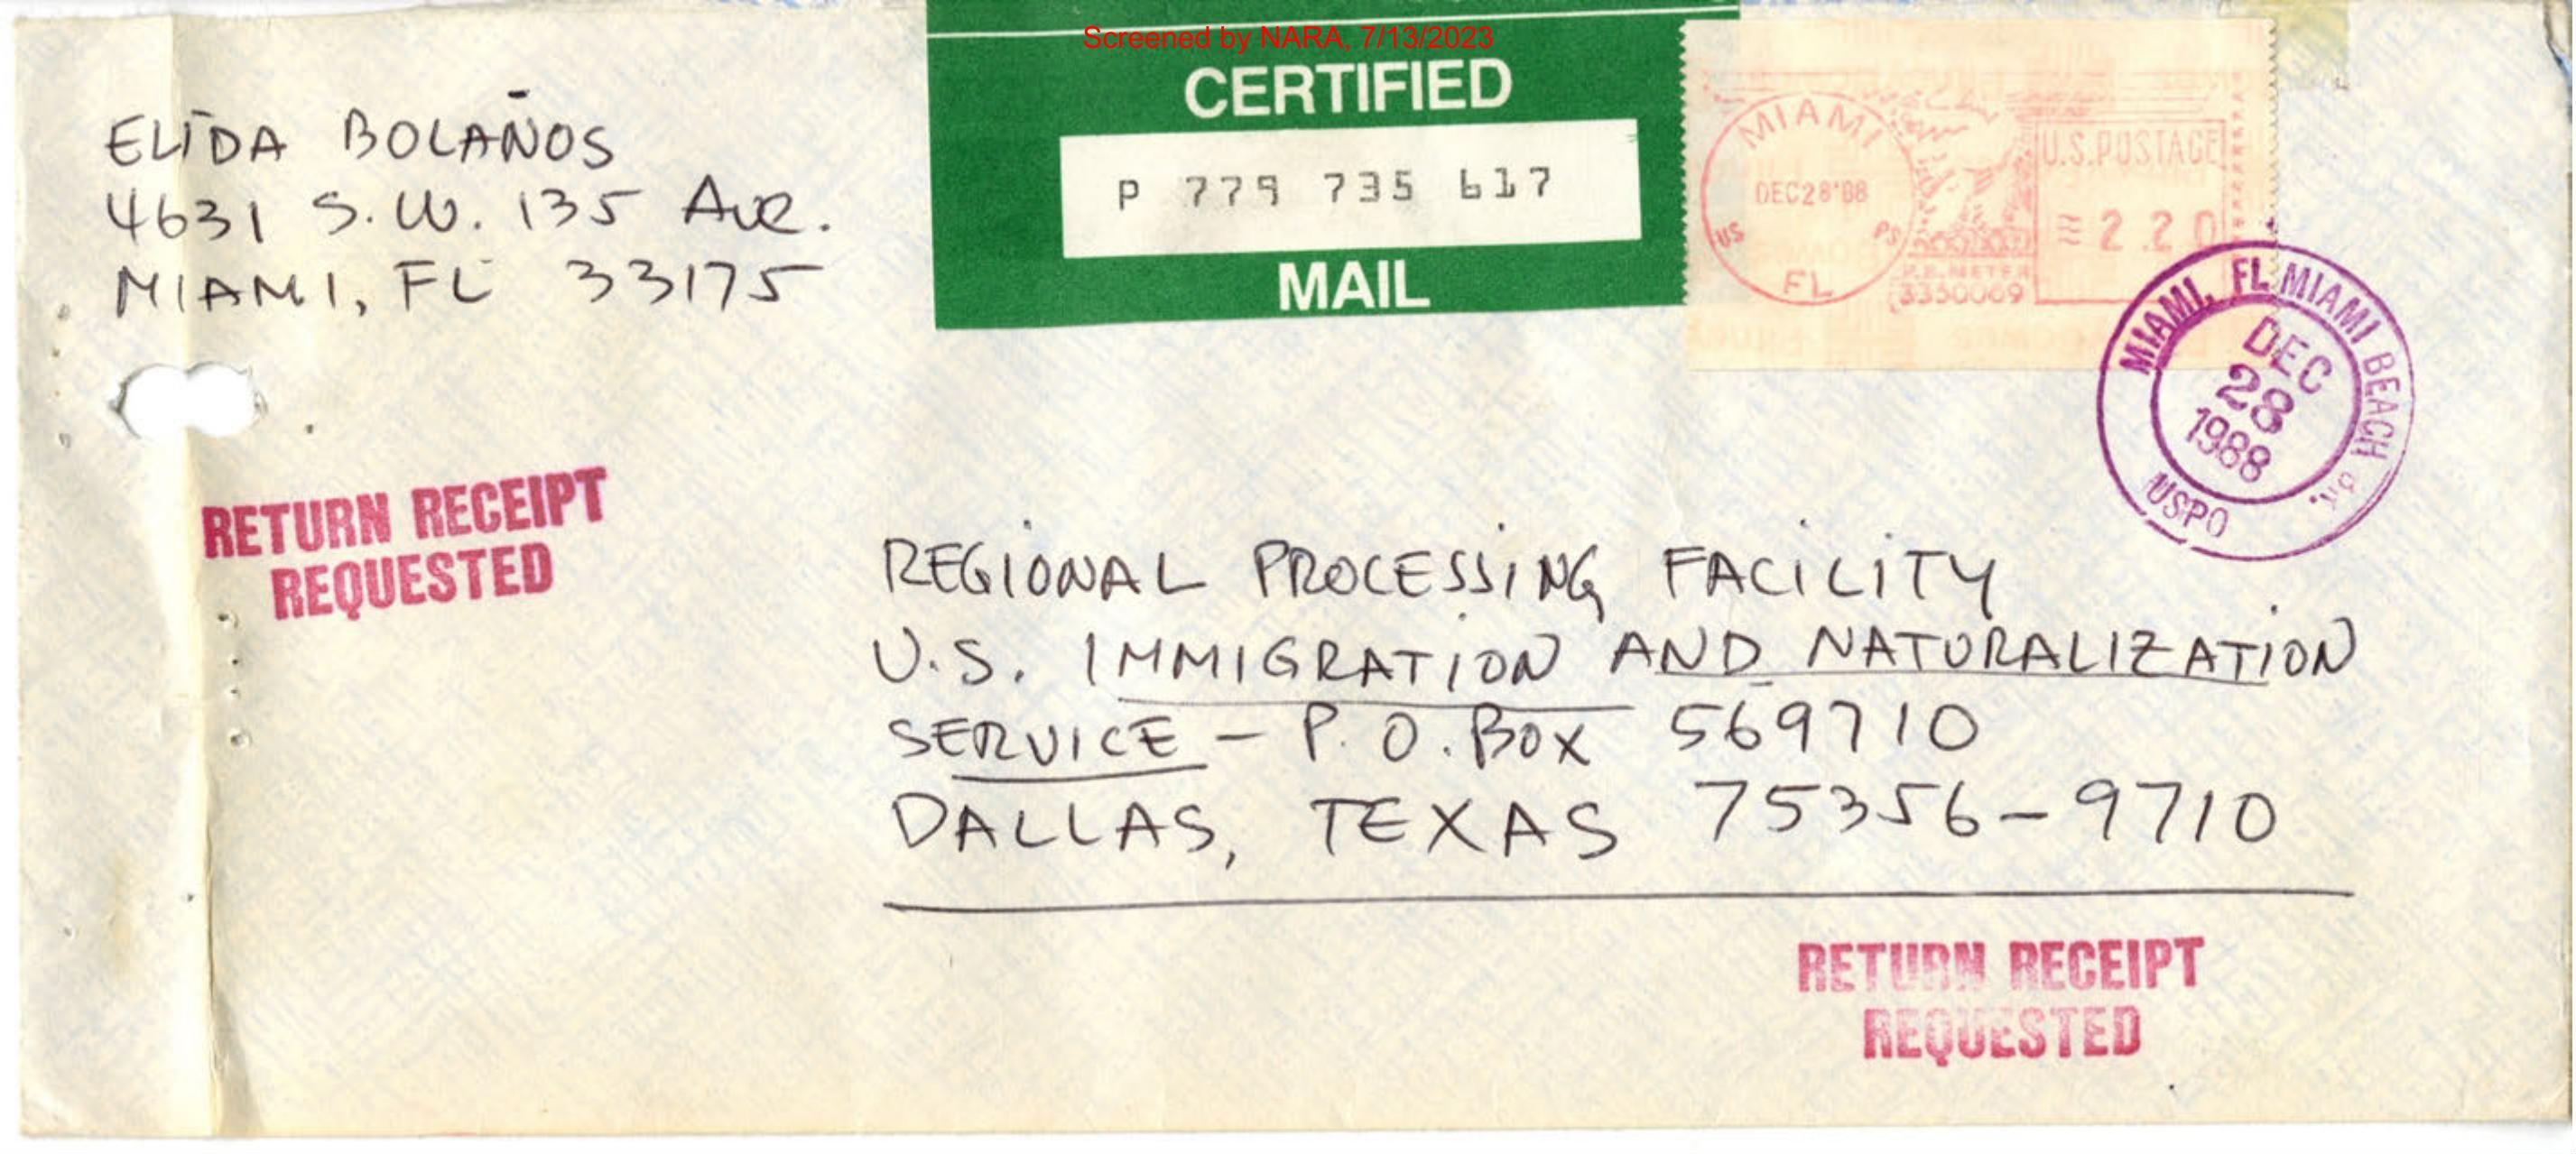 Screened by NARA, 7/13/2023
ELIDA BOLAÑOS
4631 S.W. 135 Ave.
MIAMI, FL 33175
CERTIFIED
P 779 735 617
MAIL
MIAMI
DEC 28 '88
US PS
FL
P.B. METER
3350069
U.S. POSTAGE
2.20
MIAMI, FL MIAMI BEACH
DEC
28
1988
USPO
RETURN RECEIPT
REQUESTED
REGIONAL PROCESSING FACILITY
U.S. IMMIGRATION AND NATURALIZATION
SERVICE - P.O. BOX 569710
DALLAS, TEXAS 75356-9710
RETURN RECEIPT
REQUESTED